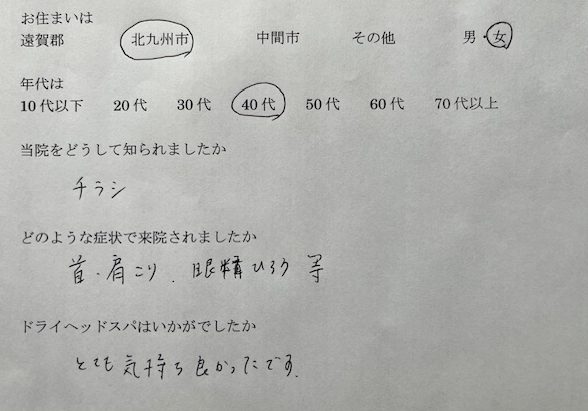 お住まいは
遠賀郡 北九州市 中間市 その他 男・女
年代は
10代以下 20代 30代 40代 50代 60代 70代以上
当院をどうして知られましたか
チラシ
どのような症状で来院されましたか
首・肩こり、眼精ひろう 等
ドライヘッドスパはいかがでしたか
とても気持ち良かったです。